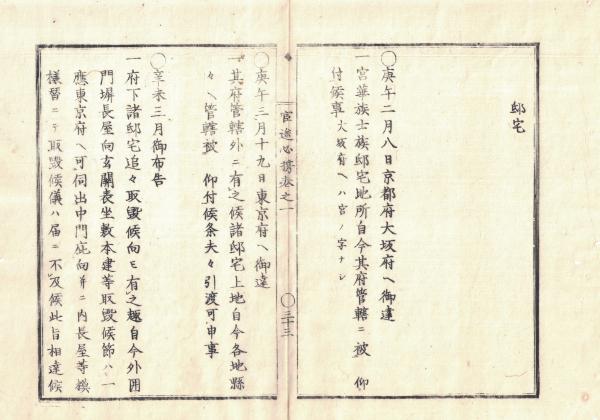 邸宅
〇庚午二月八日京都府大坂府ヘ御達
一宮華族士族邸宅地所自今其府管轄ニ被 仰
付候事 大坂府ヘハ宮ノ字ナシ
官途必携巻之一 〇三十三
〇庚午三月十九日東京府ヘ御達
一其府管轄外ニ有之候諸邸宅上地自今各地縣
々ヘ管轄被 仰付候条夫々引渡可申事
〇辛未三月御布告
一府下諸邸宅追々取毀候向モ有之趣自今外囲
門塀長屋向玄關表坐敷本建等取毀候節ハ一
應東京府ヘ可伺出中門庇向并ニ内長屋等模
様替ニテ取毀候儀ハ届ニ不及候此旨相達候